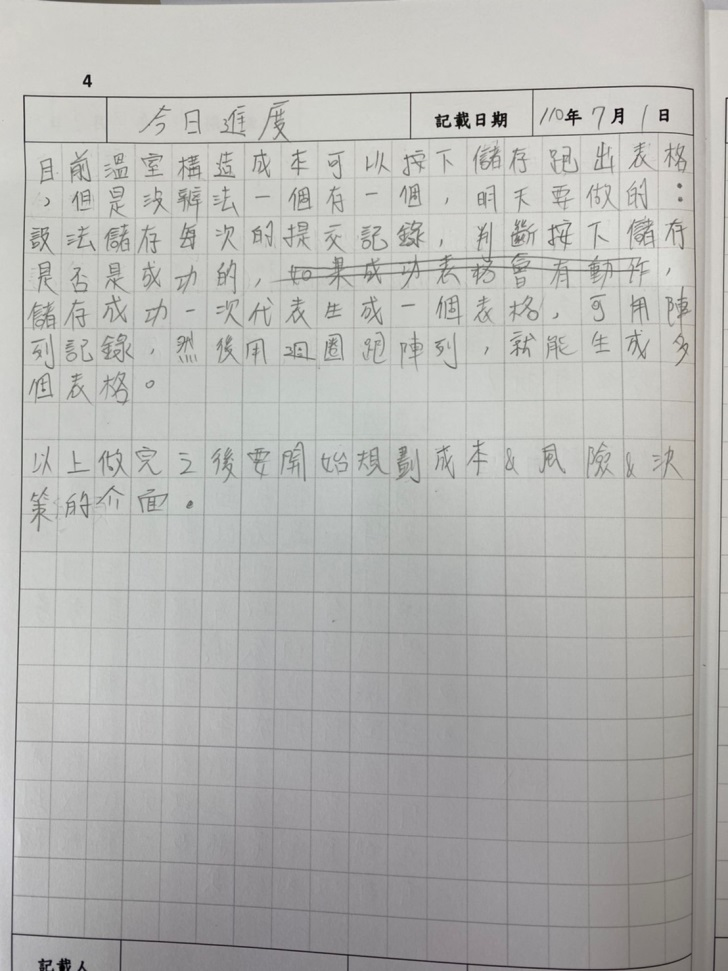 4
今日進度 記載日期 110年7月1日
目前溫室構造成本可以按下儲存跑出表格
，但是沒辦法一個有一個，明天要做的：
設法儲存每次的提交記錄，判斷按下儲存
是否是成功的，如果成功表格會有動作，
儲存成功一次代表生成一個表格，可用陣
列記錄，然後用迴圈跑陣列，就能生成多
個表格。
以上做完之後要開始規劃成本&風險&決
策的介面。
記載人